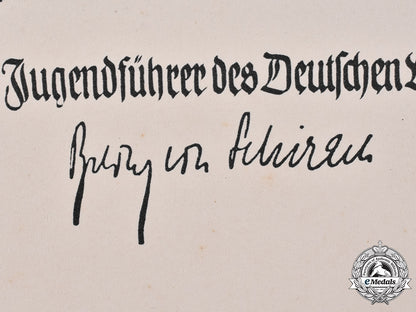 Jugendführer des Deutschen
Baldur von Schirach
eMedals